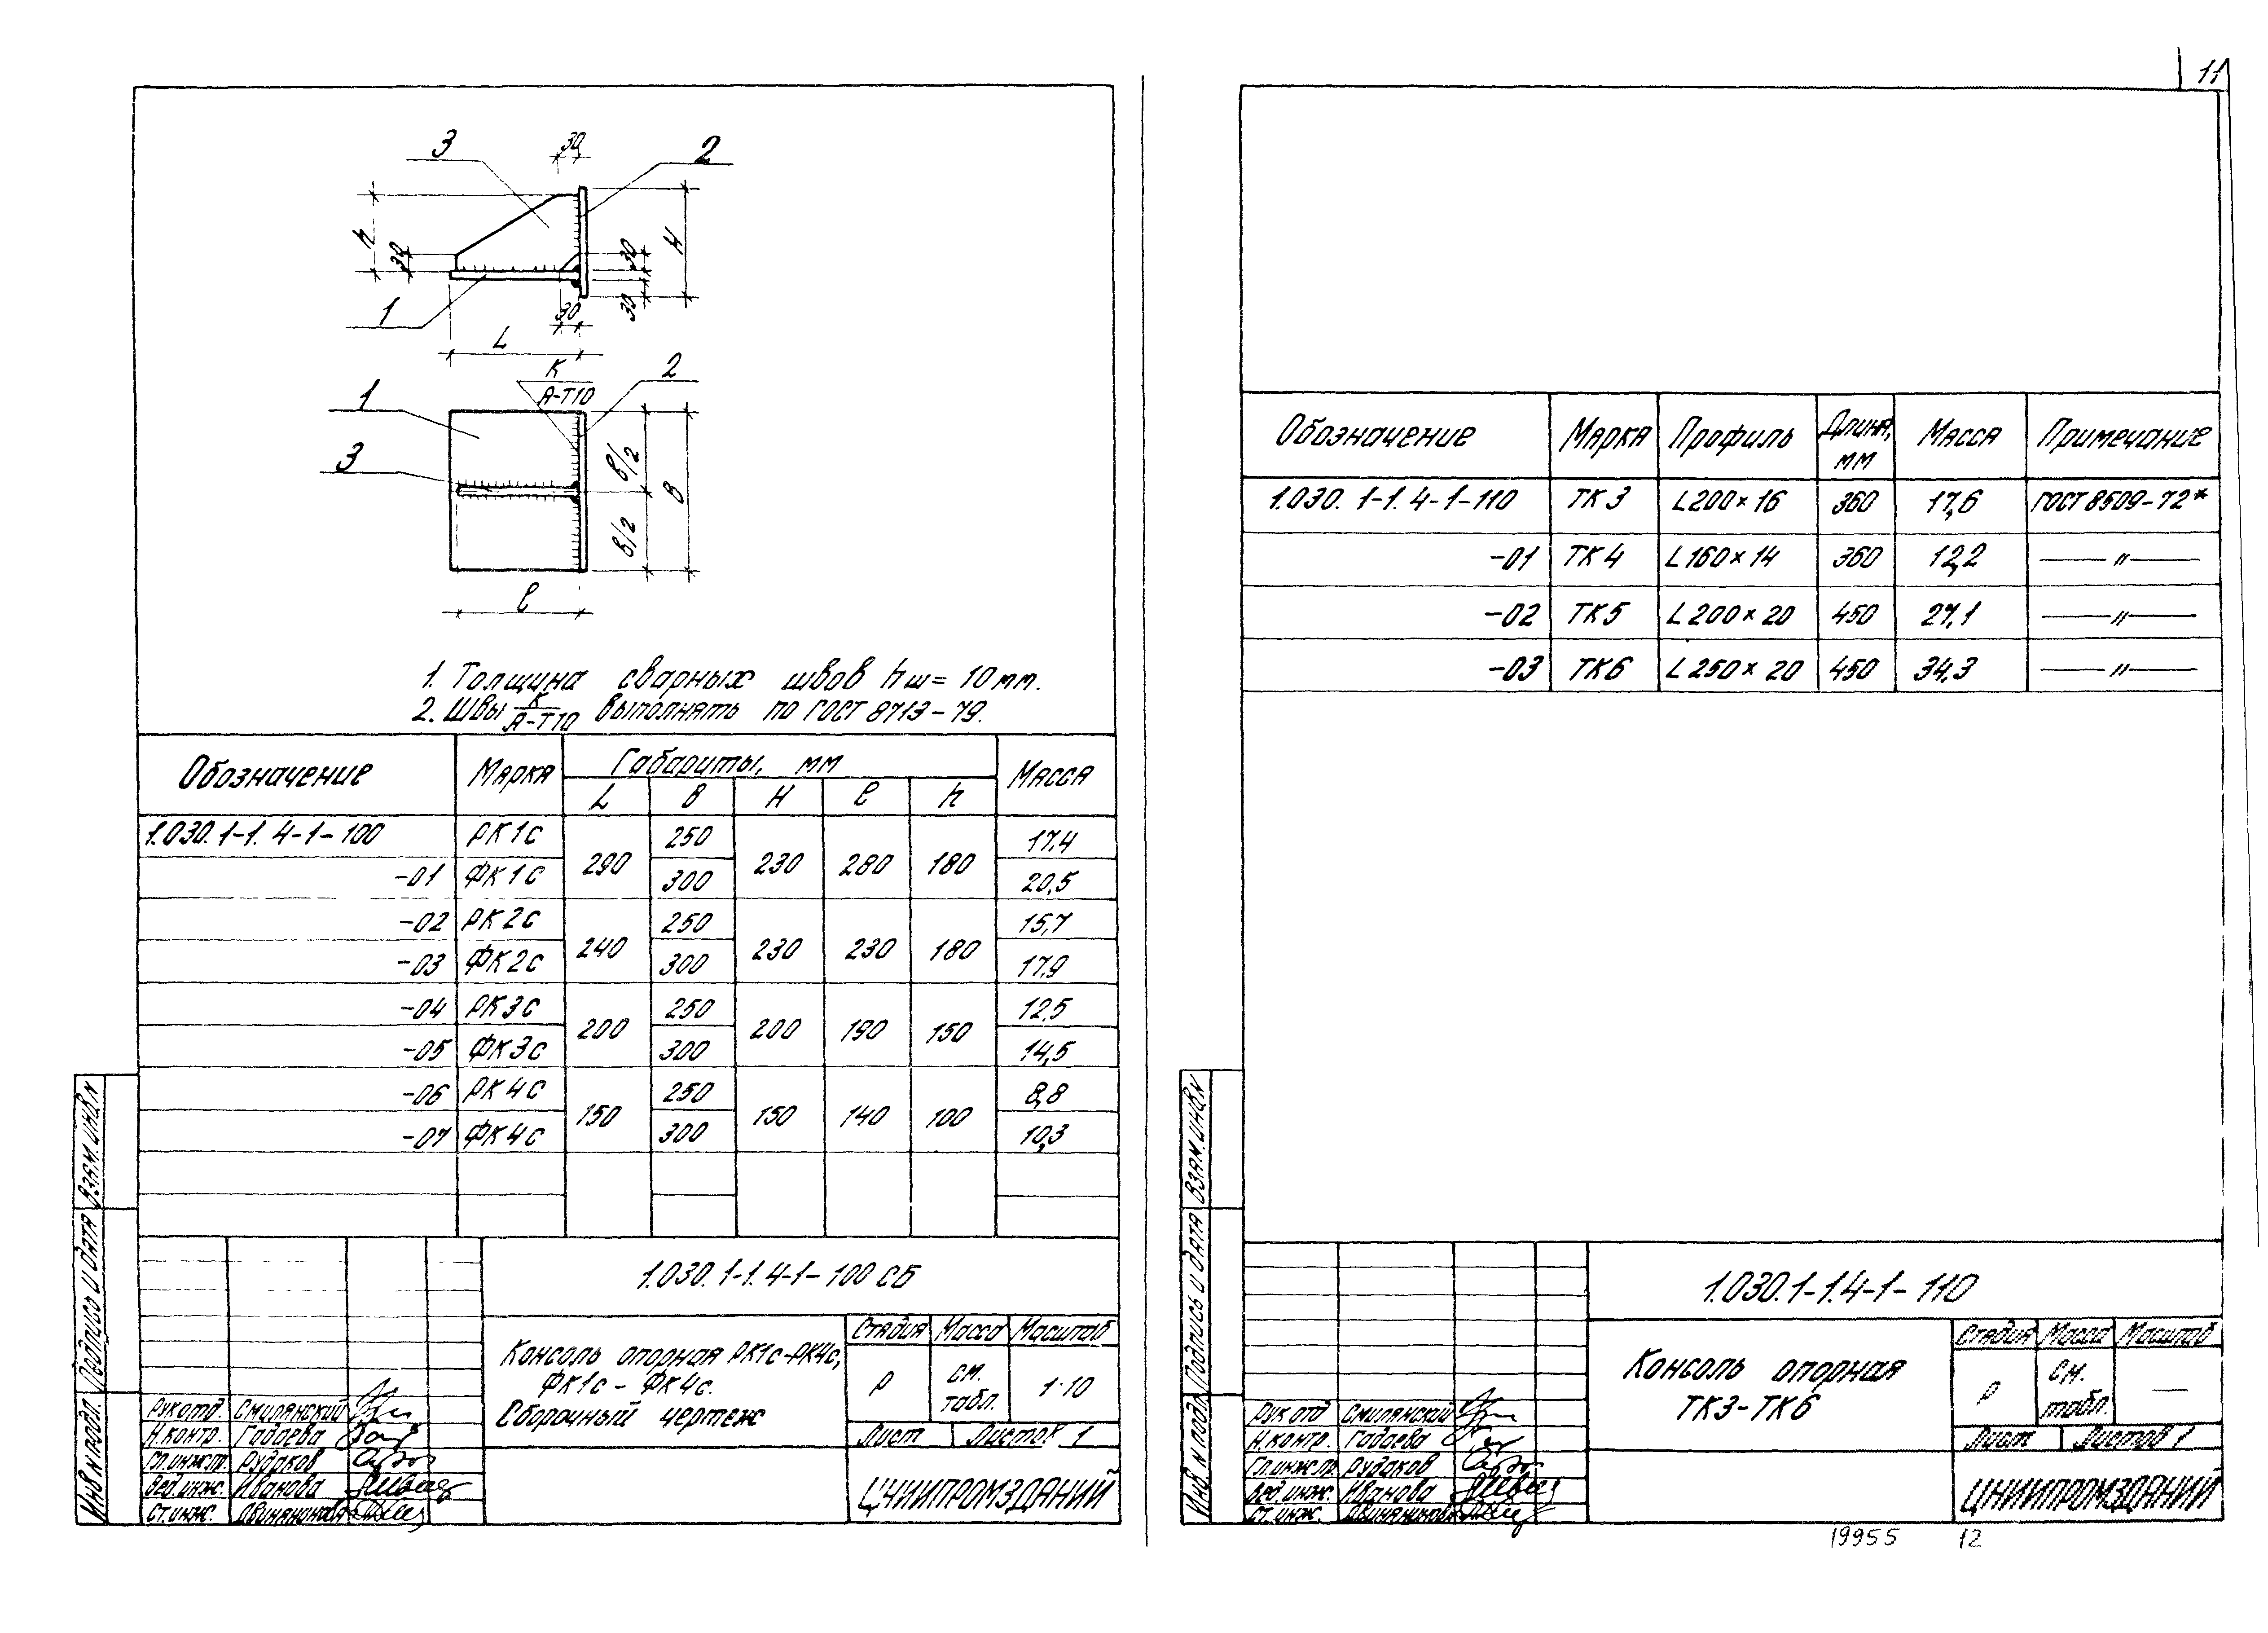 11
3
30
2
h
30
30
H
30
30
1
L
К
А-Т10
2
1
3
В/2
В/2
В
l
1. Толщина сварных швов hш = 10 мм.
2. Швы К/А-Т10 выполнять по ГОСТ 8713-79.
Обозначение Марка Габариты, мм Масса
L В H l h
1.030.1-1.4-1-100 РК1с 290 250 230 280 180 17,4
-01 ФК1с 300 20,5
-02 РК2с 240 250 230 230 180 15,7
-03 ФК2с 300 17,9
-04 РК3с 200 250 200 190 150 12,5
-05 ФК3с 300 14,5
-06 РК4с 150 250 150 140 100 8,8
-07 ФК4с 300 10,3
1.030.1-1.4-1-100 СБ
Консоль опорная РК1с-РК4с,
ФК1с - ФК4с.
Сборочный чертеж
Стадия Масса Масштаб
Р см. табл. 1:10
Лист Листов 1
ЦНИИПРОМЗДАНИЙ
Рук.отд. Смилянский
Н.контр. Гадаева
Гл.инж.пр. Рудаков
Вед.инж. Иванова
Ст.инж. Двинянинова
Инв N подл. Подпись и дата Взам.инв.N
Обозначение Марка Профиль Длина, мм Масса Примечание
1.030.1-1.4-1-110 ТК3 L200×16 360 17,6 ГОСТ 8509-72*
-01 ТК4 L160×14 360 12,2 —〃—
-02 ТК5 L200×20 450 27,1 —〃—
-03 ТК6 L250×20 450 34,3 —〃—
1.030.1-1.4-1-110
Консоль опорная
ТК3-ТК6
Стадия Масса Масштаб
Р см. табл. —
Лист Листов 1
ЦНИИПРОМЗДАНИЙ
Рук.отд Смилянский
Н.контр. Гадаева
Гл.инж.пр Рудаков
Вед.инж. Иванова
Ст.инж. Двинянинова
Инв. N подл. Подпись и дата Взам.инв.N
19955 12